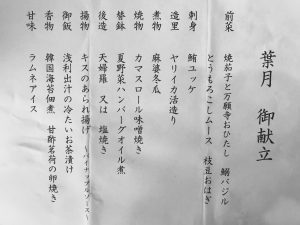 葉月　御献立
前菜　焼茄子と万願寺おひたし　鰯バジル
とうもろこしムース　枝豆おはぎ
刺身　鮪ユッケ
造里　ヤリイカ活造り
煮物　麻婆冬瓜
焼物　カマスロール味噌焼き
替鉢　夏野菜ハンバーグオイル煮
後造　天婦羅　又は　塩焼き
揚物　キスのあられ揚げ　～パイナップルソース～
御飯　浅利出汁の冷たいお茶漬け
香物　韓国海苔佃煮　甘酢茗荷の卵焼き
甘味　ラムネアイス